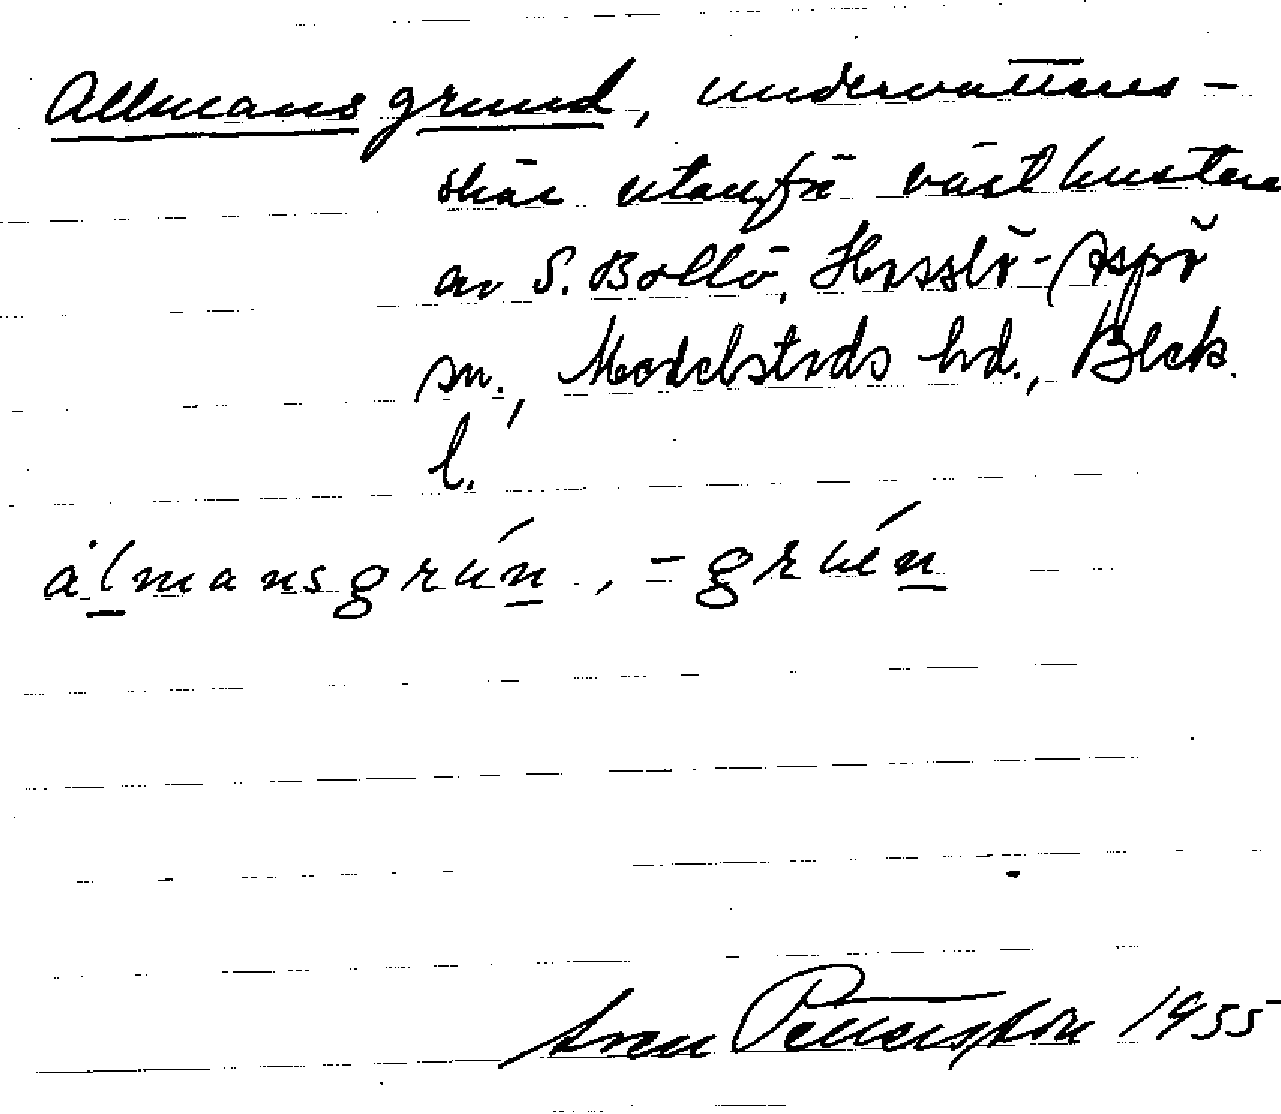 Allmansgrund, undervattens-
skär utanför västkusten
av S. Bollö, Hasslö-Aspö
sn., Medelstads hd., Blek.
l.
àl̲mansgrún̲, -gruén̲
Sven Pettersson 1955